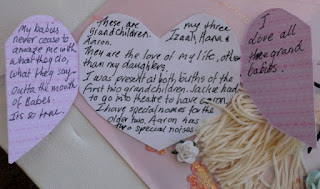 My babies
never cease to
amaze me with
what they do,
what they say -
Outta the mouth
of Babes.
It's so true.
These are my three
grandchildren. Izaah, Aana &
Aaron.
They are the love of my life, other
than my daughters.
I was present at both births of the
first two grandchildren. Jackie had
to go into theatre to have Aaron.
I have special names for the
older two. Aaron has
two special noises.
I
love all
three grand
babies.